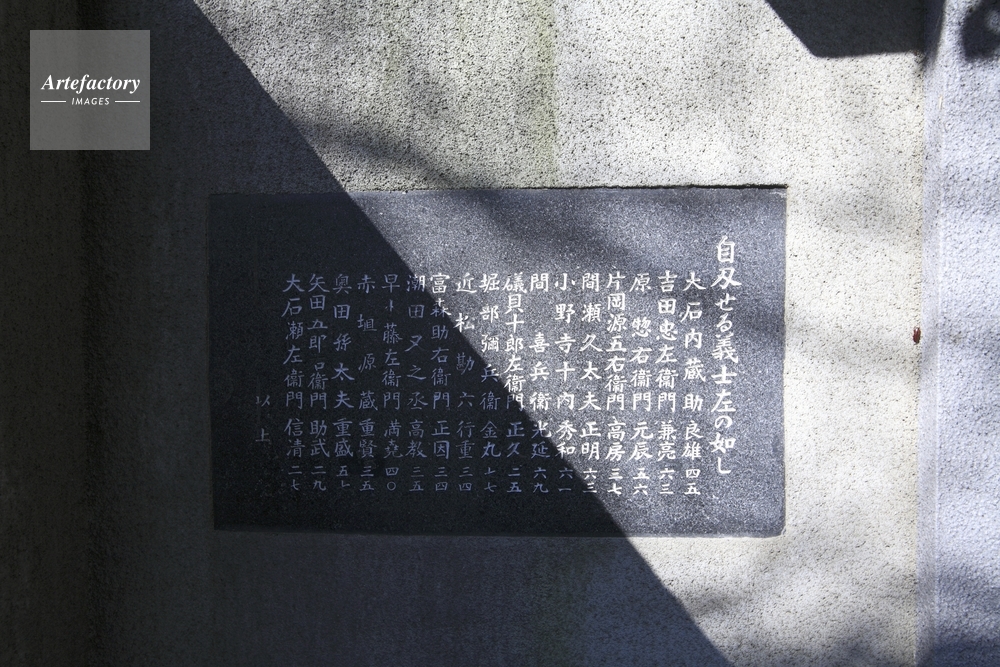 Artefactory
IMAGES
自刄せる義士左の如し
大石内蔵助良雄四五
吉田忠左衞門兼亮六三
原惣右衞門元辰五六
片岡源五右衞門高房三七
間瀬久太夫正明六三
小野寺十内秀和六一
間喜兵衞光延六九
礒貝十郎左衞門正久二五
堀部彌兵衞金丸七七
近松勘六行重三四
富森助右衞門正因三四
潮田又之丞高教三五
早水藤左衞門満尭四〇
赤埴源蔵重賢三五
奥田孫太夫重盛五七
矢田五郎右衞門助武二九
大石瀬左衞門信清二七
以上